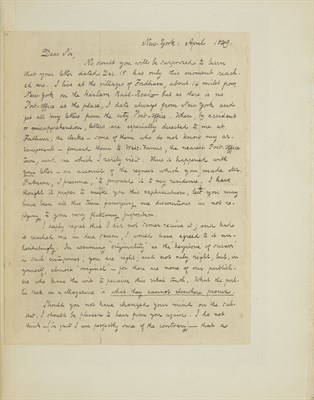 New-York: April 1849.
Dear Sir,
No doubt you will be surprised to learn
that your letter dated Dec. 18 has only this moment reach-
ed me. I live at the village of Fordham; about 14 miles from
New-York on the Harlaem Rail-Road — but as there is no
Post-Office at the place, I date always from New-York and
get all my letters from the city Post-Office. When, by accident
or misapprehension, letters are especially directed to me at
Fordham, the clerks — some of them who do not know my ar-
rangements — forward them to West-Farms, the nearest Post-Office
town, and one which I rarely visit. Thus it happened with
your letter — on account of the request which you made Mr.
Putnam, I presume, "to forward it to my residence". I have
thought it proper to make you this explanation, lest you may
have been all this time fancying me discourteous in not re-
plying to your very flattering proposition.
I deeply regret that I did not sooner receive it; and had
it reached me in due season, I would have agreed to it un-
hesitatingly. In assuming "originality" as the "keystone of success"
in such enterprises, you are right; and not only right, but, in
yourself, almost "original" — for there are none of our publish-
ers who have the wit to perceive this vital truth. What the pub-
lic seek in a Magazine is what they cannot elsewhere procure.
Should you not have changed your mind on the sub-
ject, I should be pleased to hear from you again. I do not
think — (in fact I am perfectly sure of the contrary) — that a